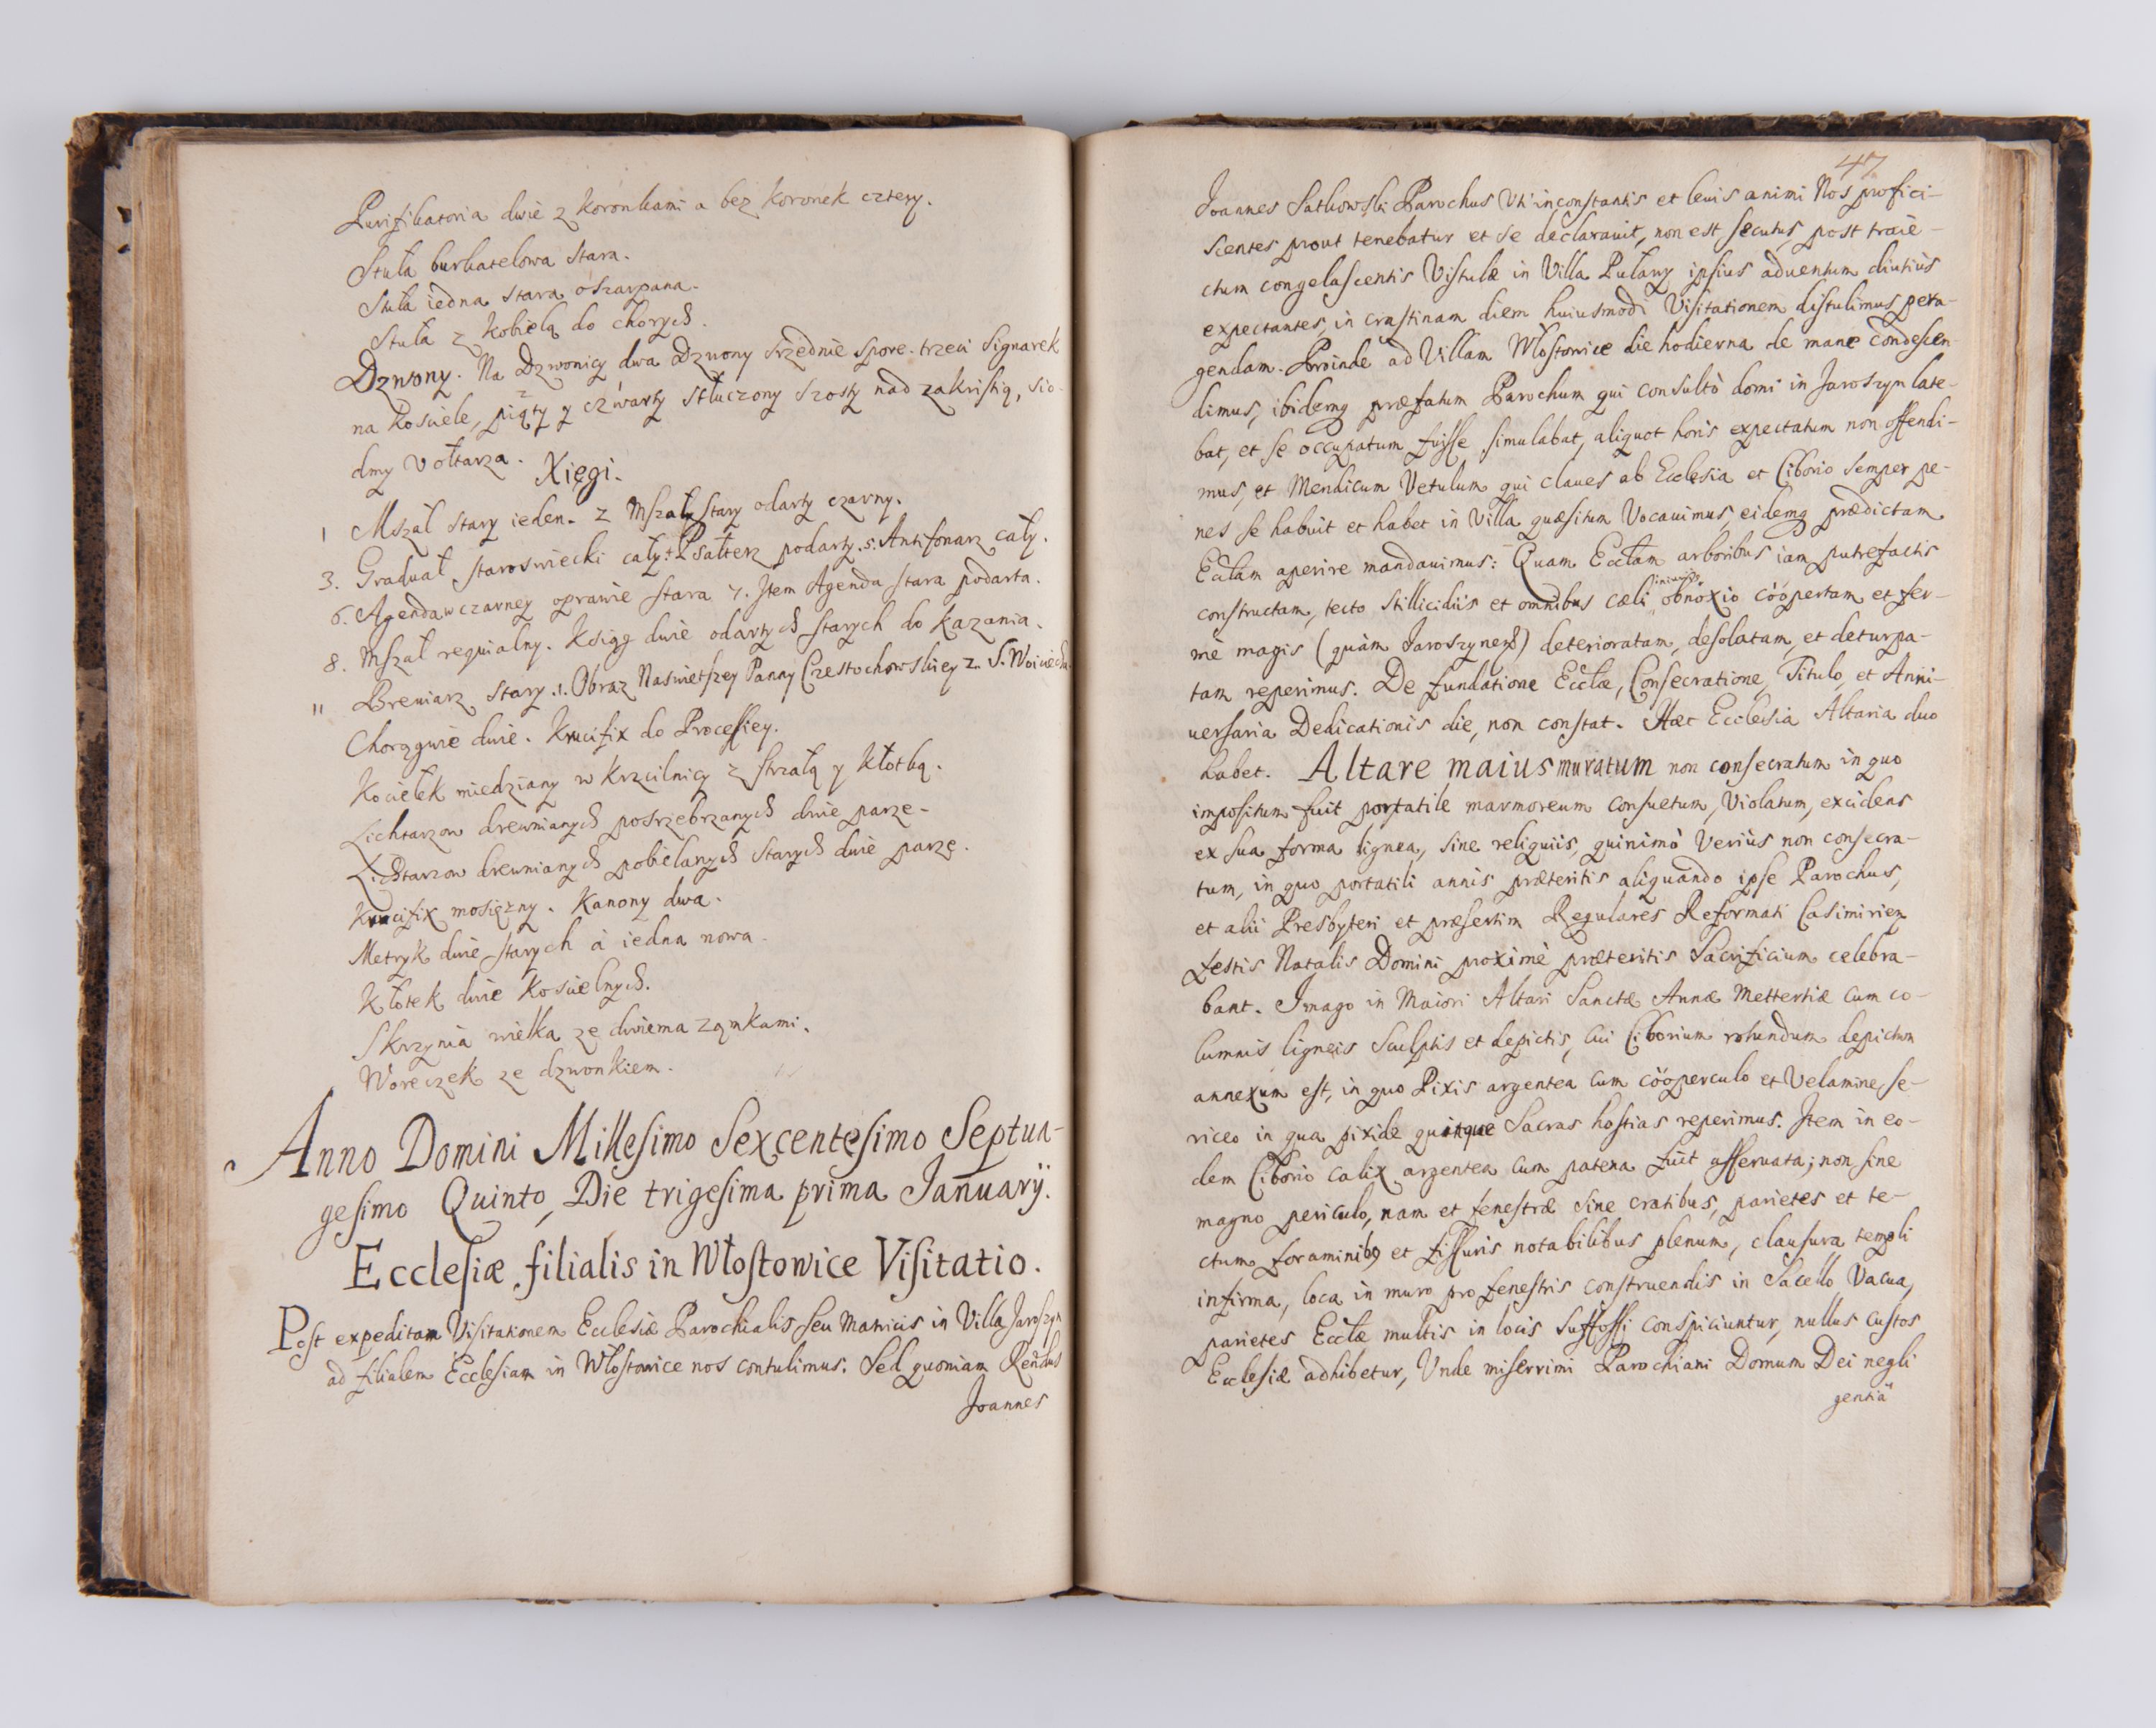 Purifikatoria dwie z koronkami a bez koronek cztery.
Stuła burkatelowa stara.
Stuła iedna stara oszarpana.
Stuła z kobielą do chorych.
Dzwony. Na Dzwonicy dwa Dzwony srzednie spore. trzeci Signarek
na kosciele, piąty y czwarty stłuczony szosty nad zakristią, sio-
dmy v ołtarza.
Xięgi.
1 Mszał stary ieden. 2 Mszały stary odarty czarny.
3. Graduał staroswiecki cały. 4 Psałterz podarty. 5. Antifonarz cały.
6. Agenda w czarney oprawie stara 7. Item Agenda stara podarta.
8. Mszał requialny. Ksiąg dwie odartych starych do kazania.
11 Breuiarz stary. 1. Obraz Naswietszey Panny Czestochowskiey 2. S. Woiciecha.
Chorągwie dwie. Krucifix do Processiey.
Kociełek miedziany w krzcilnicy z strzałą y kłotką.
Lichtarzow drewnianych posrzebrzanych dwie parze.
Lichtarzow drewnianych pobielanych starych dwie parzę.
Krucifix mosiężny. Kanony dwa.
Metryk dwie starych á iedna nowa.
Kłotek dwie koscielnych.
Skrzynia wielka ze dwiema ząmkami.
Woreczek ze dzwonkiem.
Anno Domini Millesimo Sexcentesimo Septua-
gesimo Quinto, Die trigesima prima Januarÿ.
Ecclesiæ filialis in Włostowice Visitatio.
Post expeditam Visitationem Ecclesiæ Parochialis seu Matricis in Villa Jaroszyn
ad filialem Ecclesiam in Włostowice nos contulimus. Sed quoniam Rendus
Joannes
47
Joannes Sutkowski Parochus Vti inconstantis et leuis animi Nos profici-
scentes prout tenebatur et se declarauit, non est secutus, post traie-
ctum congelascentis Vistulæ in Villa Puławy ipsius aduentum diutiùs
expectantes, in crastinam diem huiusmodi Visitationem distulimus pera-
gendam. Proinde ad Villam Włostowice die hodierna de mane condescen-
dimus, ibidemq præfatum Parochum qui consultò domi in Jaroszyn late-
bat, et se occupatum fuisse simulabat, aliquot horis expectatum non offendi-
mus, et Mendicum Vetulum qui claues ab Ecclesia et Ciborio semper pe-
nes se habuit et habet in Villa quæsitum Vocauimus, eidemq prædictam
Ecclam aperire mandauimus: Quam Ecclam arboribus iam putrefactis
constructam, tecto stillicidiis et omnibus cæli iniurijs obnoxio coopertam et fer-
mè magis (quàm Jaroszynen) deterioratam, desolatam, et deturpa-
tam reperimus. De fundatione Ecclæ, Consecratione, Titulo, et Anni-
uersaria Dedicationis die, non constat. Hæc Ecclesia Altaria duo
habet. Altare maius muratum non consecratum in quo
impositum fuit portatile marmoreum consuetum, Violatum, excidens
ex sua forma lignea, sine reliquiis, quinimò veriùs non consecra-
tum, in quo portatili annis præteritis aliquando ipse Parochus,
et alii Presbyteri et præsertim Regulares Reformati Casimirien
festis Natalis Domini proximè præteritis Sacrificium celebra-
bant. Imago in Maiori Altari Sanctæ Annæ Mettertiæ cum co-
lumnis ligneis Sculptis et depictis, cui Ciborium rotundum depictum
annexum est, in quo Pixis argentea cum cooperculo et Velamine se-
riceo in qua pixide quinque Sacras hostias reperimus. Item in eo-
dem Ciborio calix argentea cum patena fuit asseruata; non sine
magno periculo, nam et fenestræ sine cratibus, parietes et te-
ctum foraminibq et fissuris notabilibus plenum, clausura templi
infirma, loca in muro pro fenestris construendis in Sacello Vacua,
parietes Ecclæ multis in locis Suffossi conspiciuntur, nullus custos
Ecclesiæ adhibetur, Vnde miserrimi Parochiani Domum Dei negli
gentia